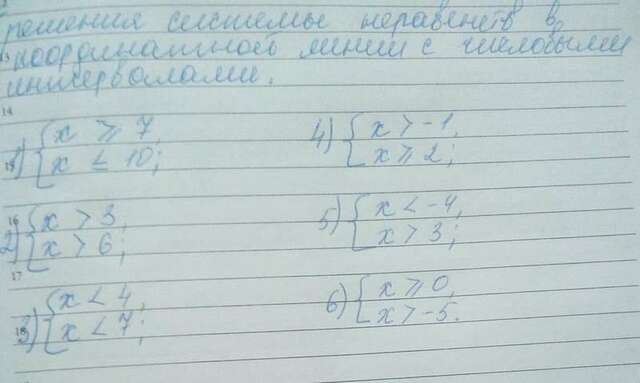 решения системы неравенств в
координатной линии с числовыми
интервалами.
14
1) { x ⩾ 7,
x ≤ 10;
4) { x > -1,
x ⩾ 2;
16
2) { x > 3,
x > 6;
5) { x < -4,
x > 3;
17
3) { x < 4,
x < 7;
6) { x ⩾ 0,
x > -5.